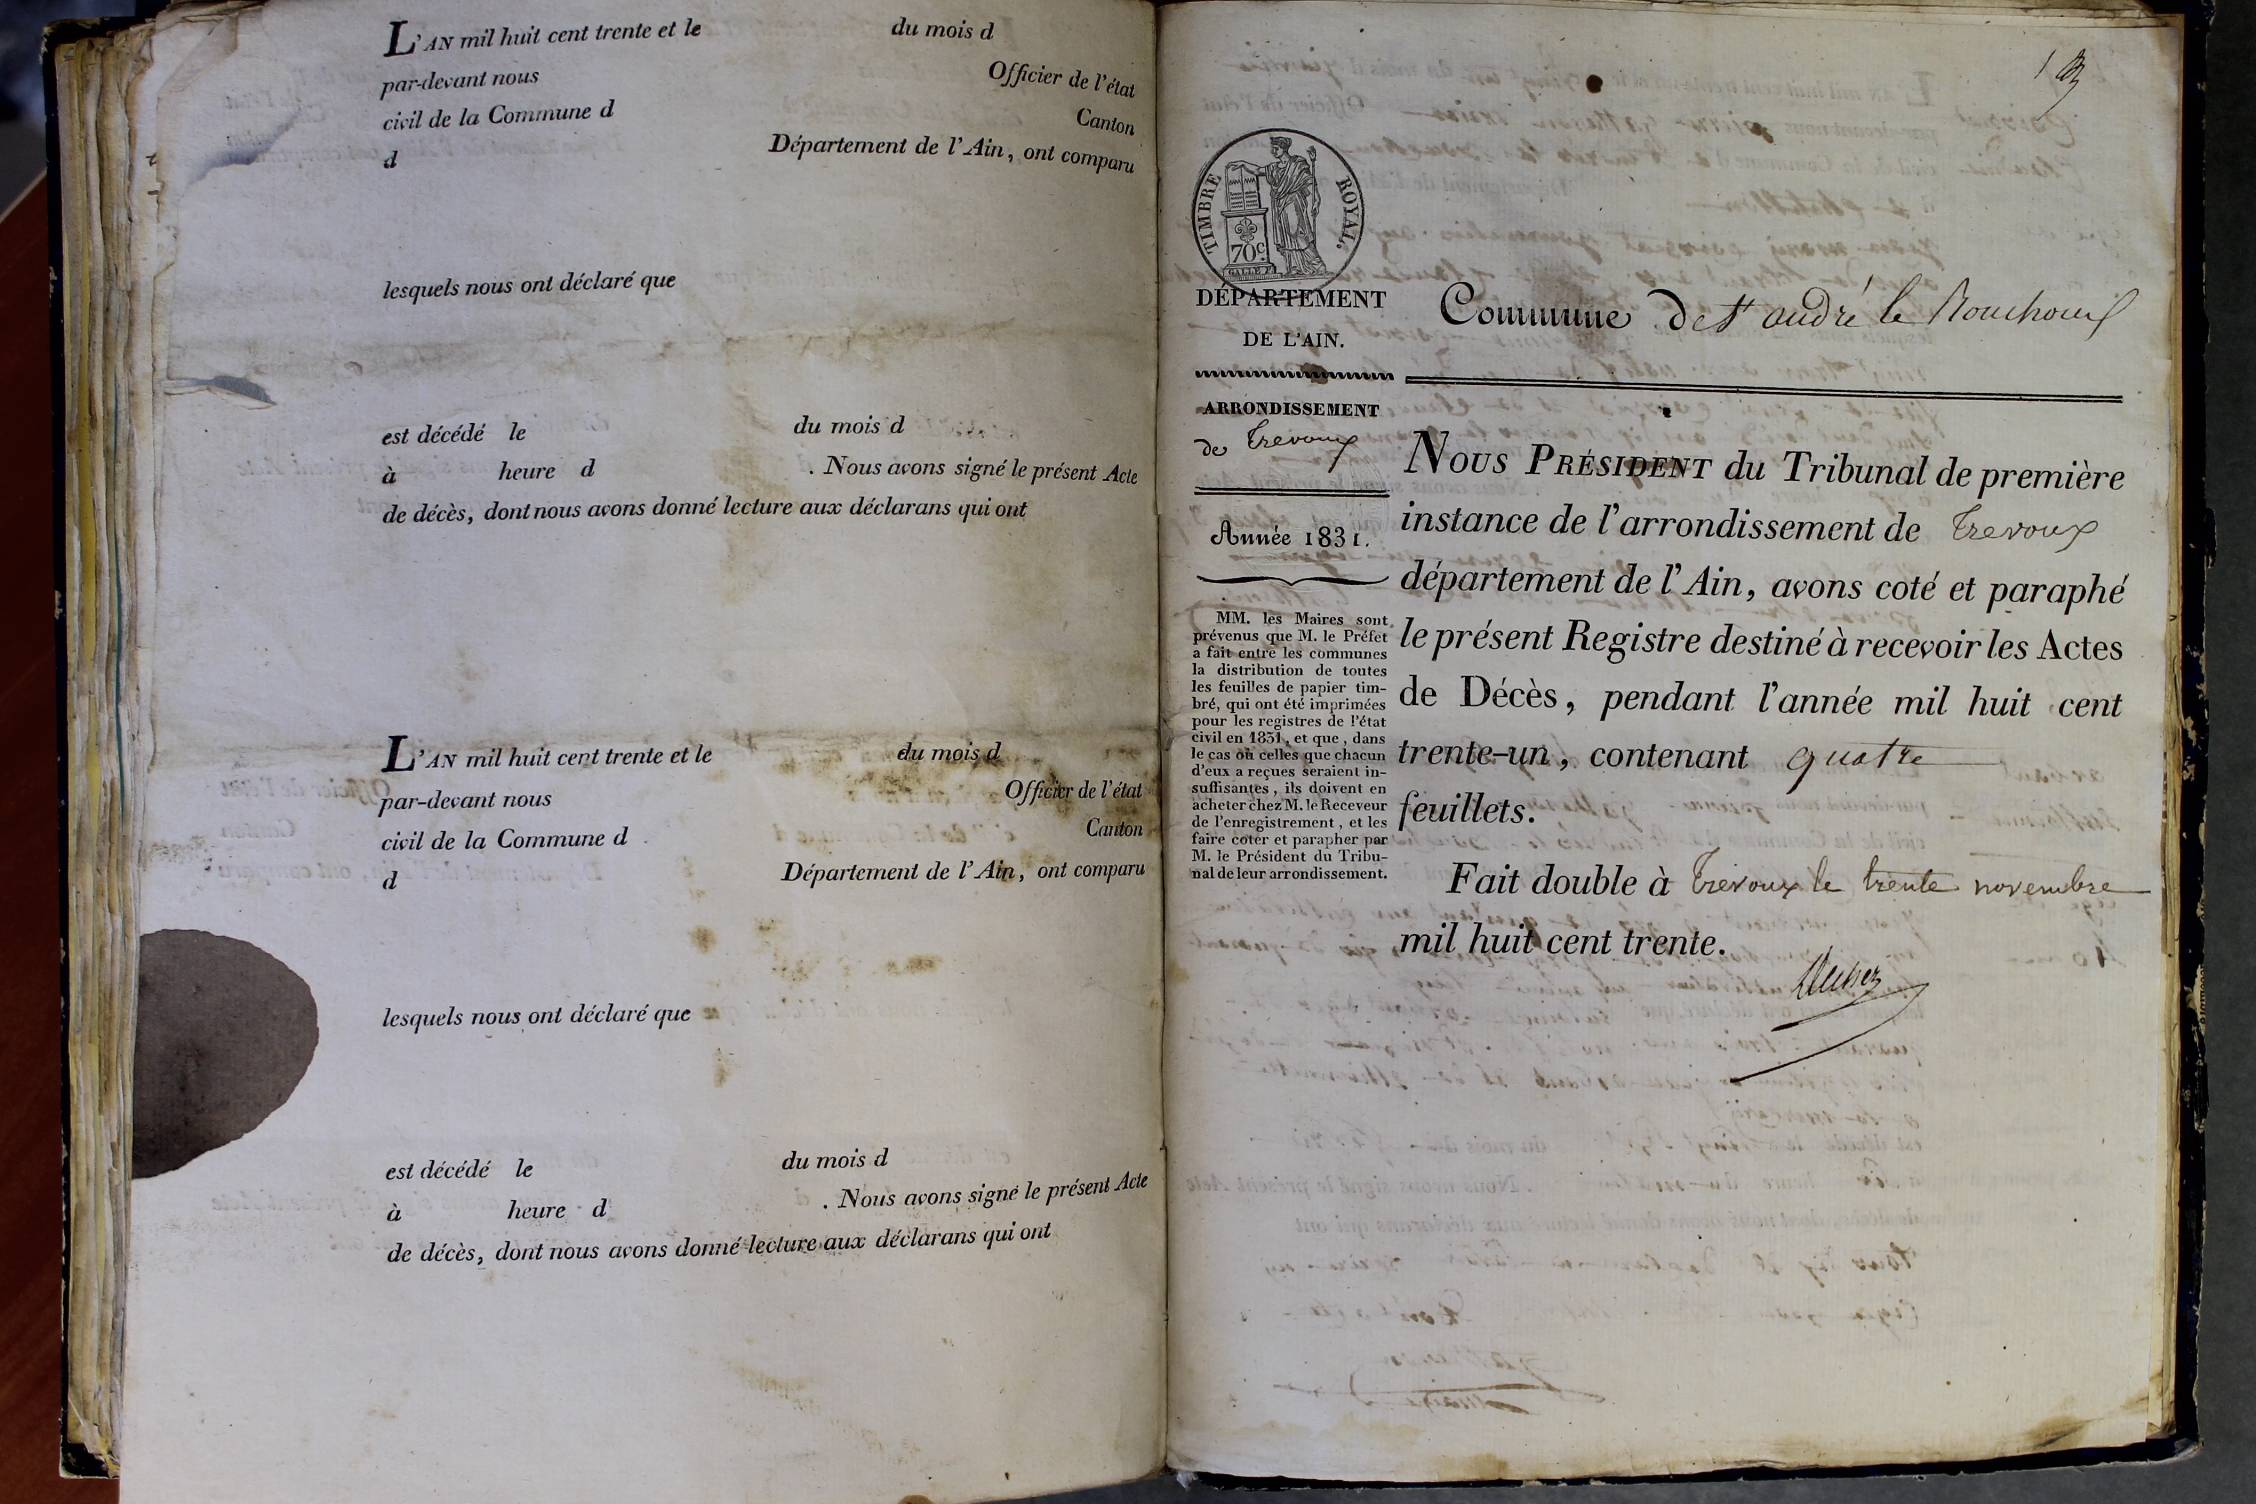 L'AN mil huit cent trente et le du mois d
par-devant nous Officier de l'état
civil de la Commune d Canton
d Département de l'Ain, ont comparu
lesquels nous ont déclaré que
est décédé le du mois d
à heure d . Nous avons signé le présent Acte
de décès, dont nous avons donné lecture aux déclarans qui ont
L'AN mil huit cent trente et le du mois d
par-devant nous Officier de l'état
civil de la Commune d Canton
d Département de l'Ain, ont comparu
lesquels nous ont déclaré que
est décédé le du mois d
à heure d . Nous avons signé le présent Acte
de décès, dont nous avons donné lecture aux déclarans qui ont
1
TIMBRE ROYAL.
70 c.
DÉPARTEMENT
DE L'AIN.
ARRONDISSEMENT
de Trevoux
Année 1831.
MM. les Maires sont
prévenus que M. le Préfet
a fait entre les communes
la distribution de toutes
les feuilles de papier tim-
bré, qui ont été imprimées
pour les registres de l'état
civil en 1831, et que, dans
le cas où celles que chacun
d'eux a reçues seraient in-
suffisantes, ils doivent en
acheter chez M. le Receveur
de l'enregistrement, et les
faire coter et parapher par
M. le Président du Tribu-
nal de leur arrondissement.
Commune de St andré le Bouchoux
NOUS PRÉSIDENT du Tribunal de première
instance de l'arrondissement de Trevoux
département de l'Ain, avons coté et paraphé
le présent Registre destiné à recevoir les Actes
de Décès, pendant l'année mil huit cent
trente-un, contenant quatre
feuillets.
Fait double à Trevoux le trente novembre
mil huit cent trente.